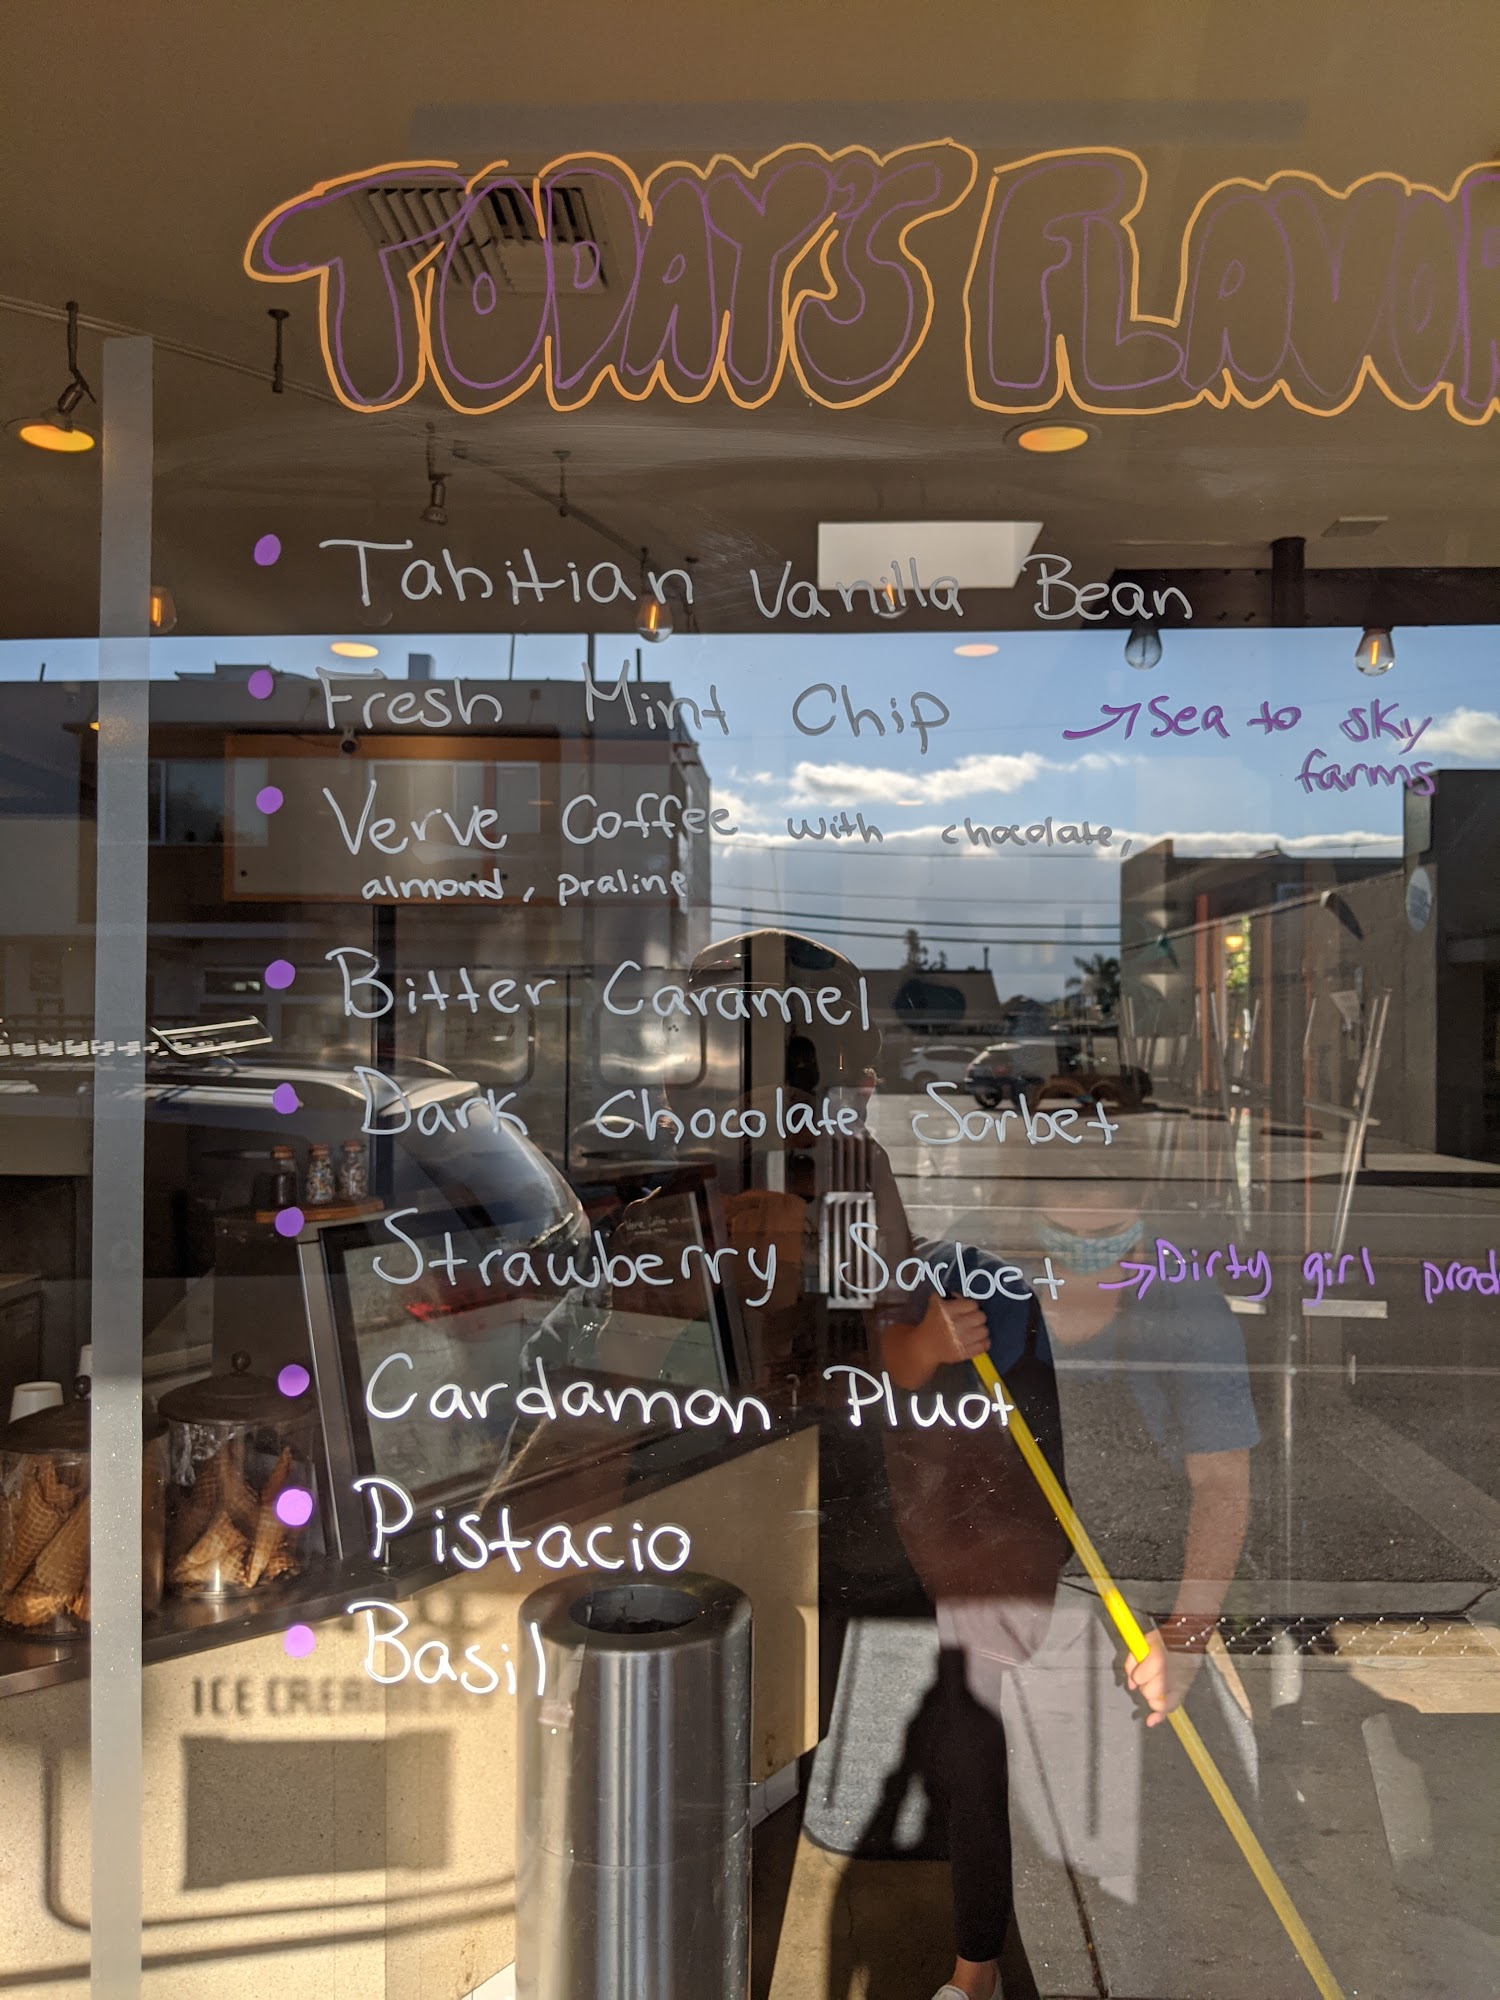 TODAY'S FLAVOR
Tahitian Vanilla Bean
Fresh Mint Chip → Sea to sky
farms
Verve Coffee with chocolate,
almond, praline
Bitter Caramel
Dark Chocolate Sorbet
Strawberry Sorbet → Dirty girl prod
Cardamon Pluot
Pistacio
Basil
ICE CREA